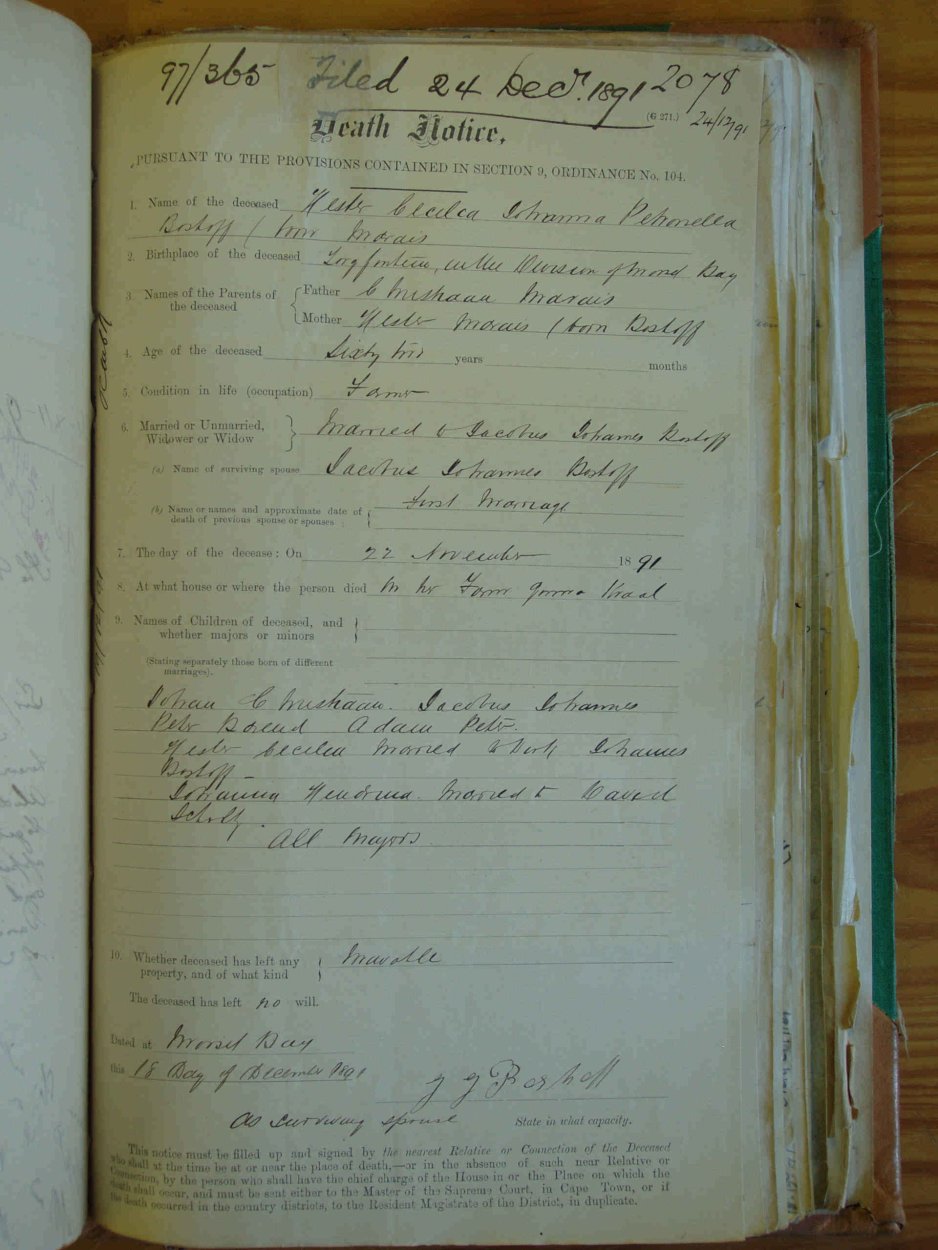 97/365 Filed 24 Decr. 1891 2078
(G 271.) 24/12/91
Death Notice.
PURSUANT TO THE PROVISIONS CONTAINED IN SECTION 9, ORDINANCE No. 104.
1. Name of the deceased Hester Cecilea Johanna Petronella
Boshoff (born Marais
2. Birthplace of the deceased in the Division of Mossel Bay
3. Names of the Parents of the deceased { Father Christiaan Marais
Mother Hester Marais (born Boshoff
4. Age of the deceased Sixty two years months
5. Condition in life (occupation) Farmer
6. Married or Unmarried, Widower or Widow } Married to Jacobus Johannes Boshoff
(a) Name of surviving spouse Jacobus Johannes Boshoff
(b) Name or names and approximate date of death of previous spouse or spouses { First Marriage
7. The day of the decease: On 22 November 1891
8. At what house or where the person died On her Farm Kraal
9. Names of Children of deceased, and whether majors or minors }
(Stating separately those born of different marriages).
Johan Christiaan. Jacobus Johannes
Petr Barend Adam Petr.
Hester Cecilia Married to Johannes
Boshoff
Johanna Hendrina. Married to David
Scholtz.
All Majors
10. Whether deceased has left any property, and of what kind } Movable
The deceased has left no will.
Dated at Mossel Bay
this 18 Day of December 1891
J J Boshoff
As surviving spouse State in what capacity.
This notice must be filled up and signed by the nearest Relative or Connection of the Deceased
who shall at the time be at or near the place of death,—or in the absence of such near Relative or
Connection, by the person who shall have the chief charge of the House in or the Place on which the
death shall occur, and must be sent either to the Master of the Supreme Court, in Cape Town, or if
the death occurred in the country districts, to the Resident Magistrate of the District, in duplicate.